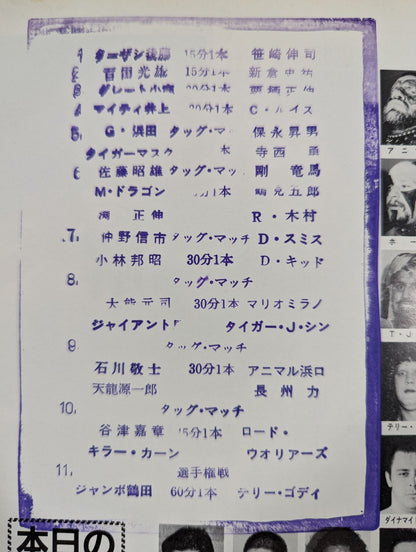 1 ターザン後藤 15分1本 笹崎伸司
2 百田光雄 15分1本 新倉史祐
3 グレート小鹿 20分1本 栗栖正伸
4 マイティ井上 20分1本 C・ルイス
5 G・浜田 タッグ・マ 保永昇男
タイガーマスク 本 寺西勇
6 佐藤昭雄 タッグ・マッ 剛竜馬
M・ドラゴン 分1本 鶴見五郎
渕正伸 R・木村
7. 仲野信市 タッグ・マッチ D・スミス
小林邦昭 30分1本 D・キッド
8. タッグ・マッチ
大熊元司 30分1本 マリオミラノ
ジャイアント タイガー・J・シン
9 タッグ・マッチ
石川敬士 30分1本 アニマル浜口
天龍源一郎 長州力
10, タッグ・マッチ
谷津嘉章 45分1本 ロード・
キラー・カーン ウオリアーズ
11, 選手権戦
ジャンボ鶴田 60分1本 テリー・ゴディ
本日の
アニ
ホ
T・J
テリー・
ダイナマイ